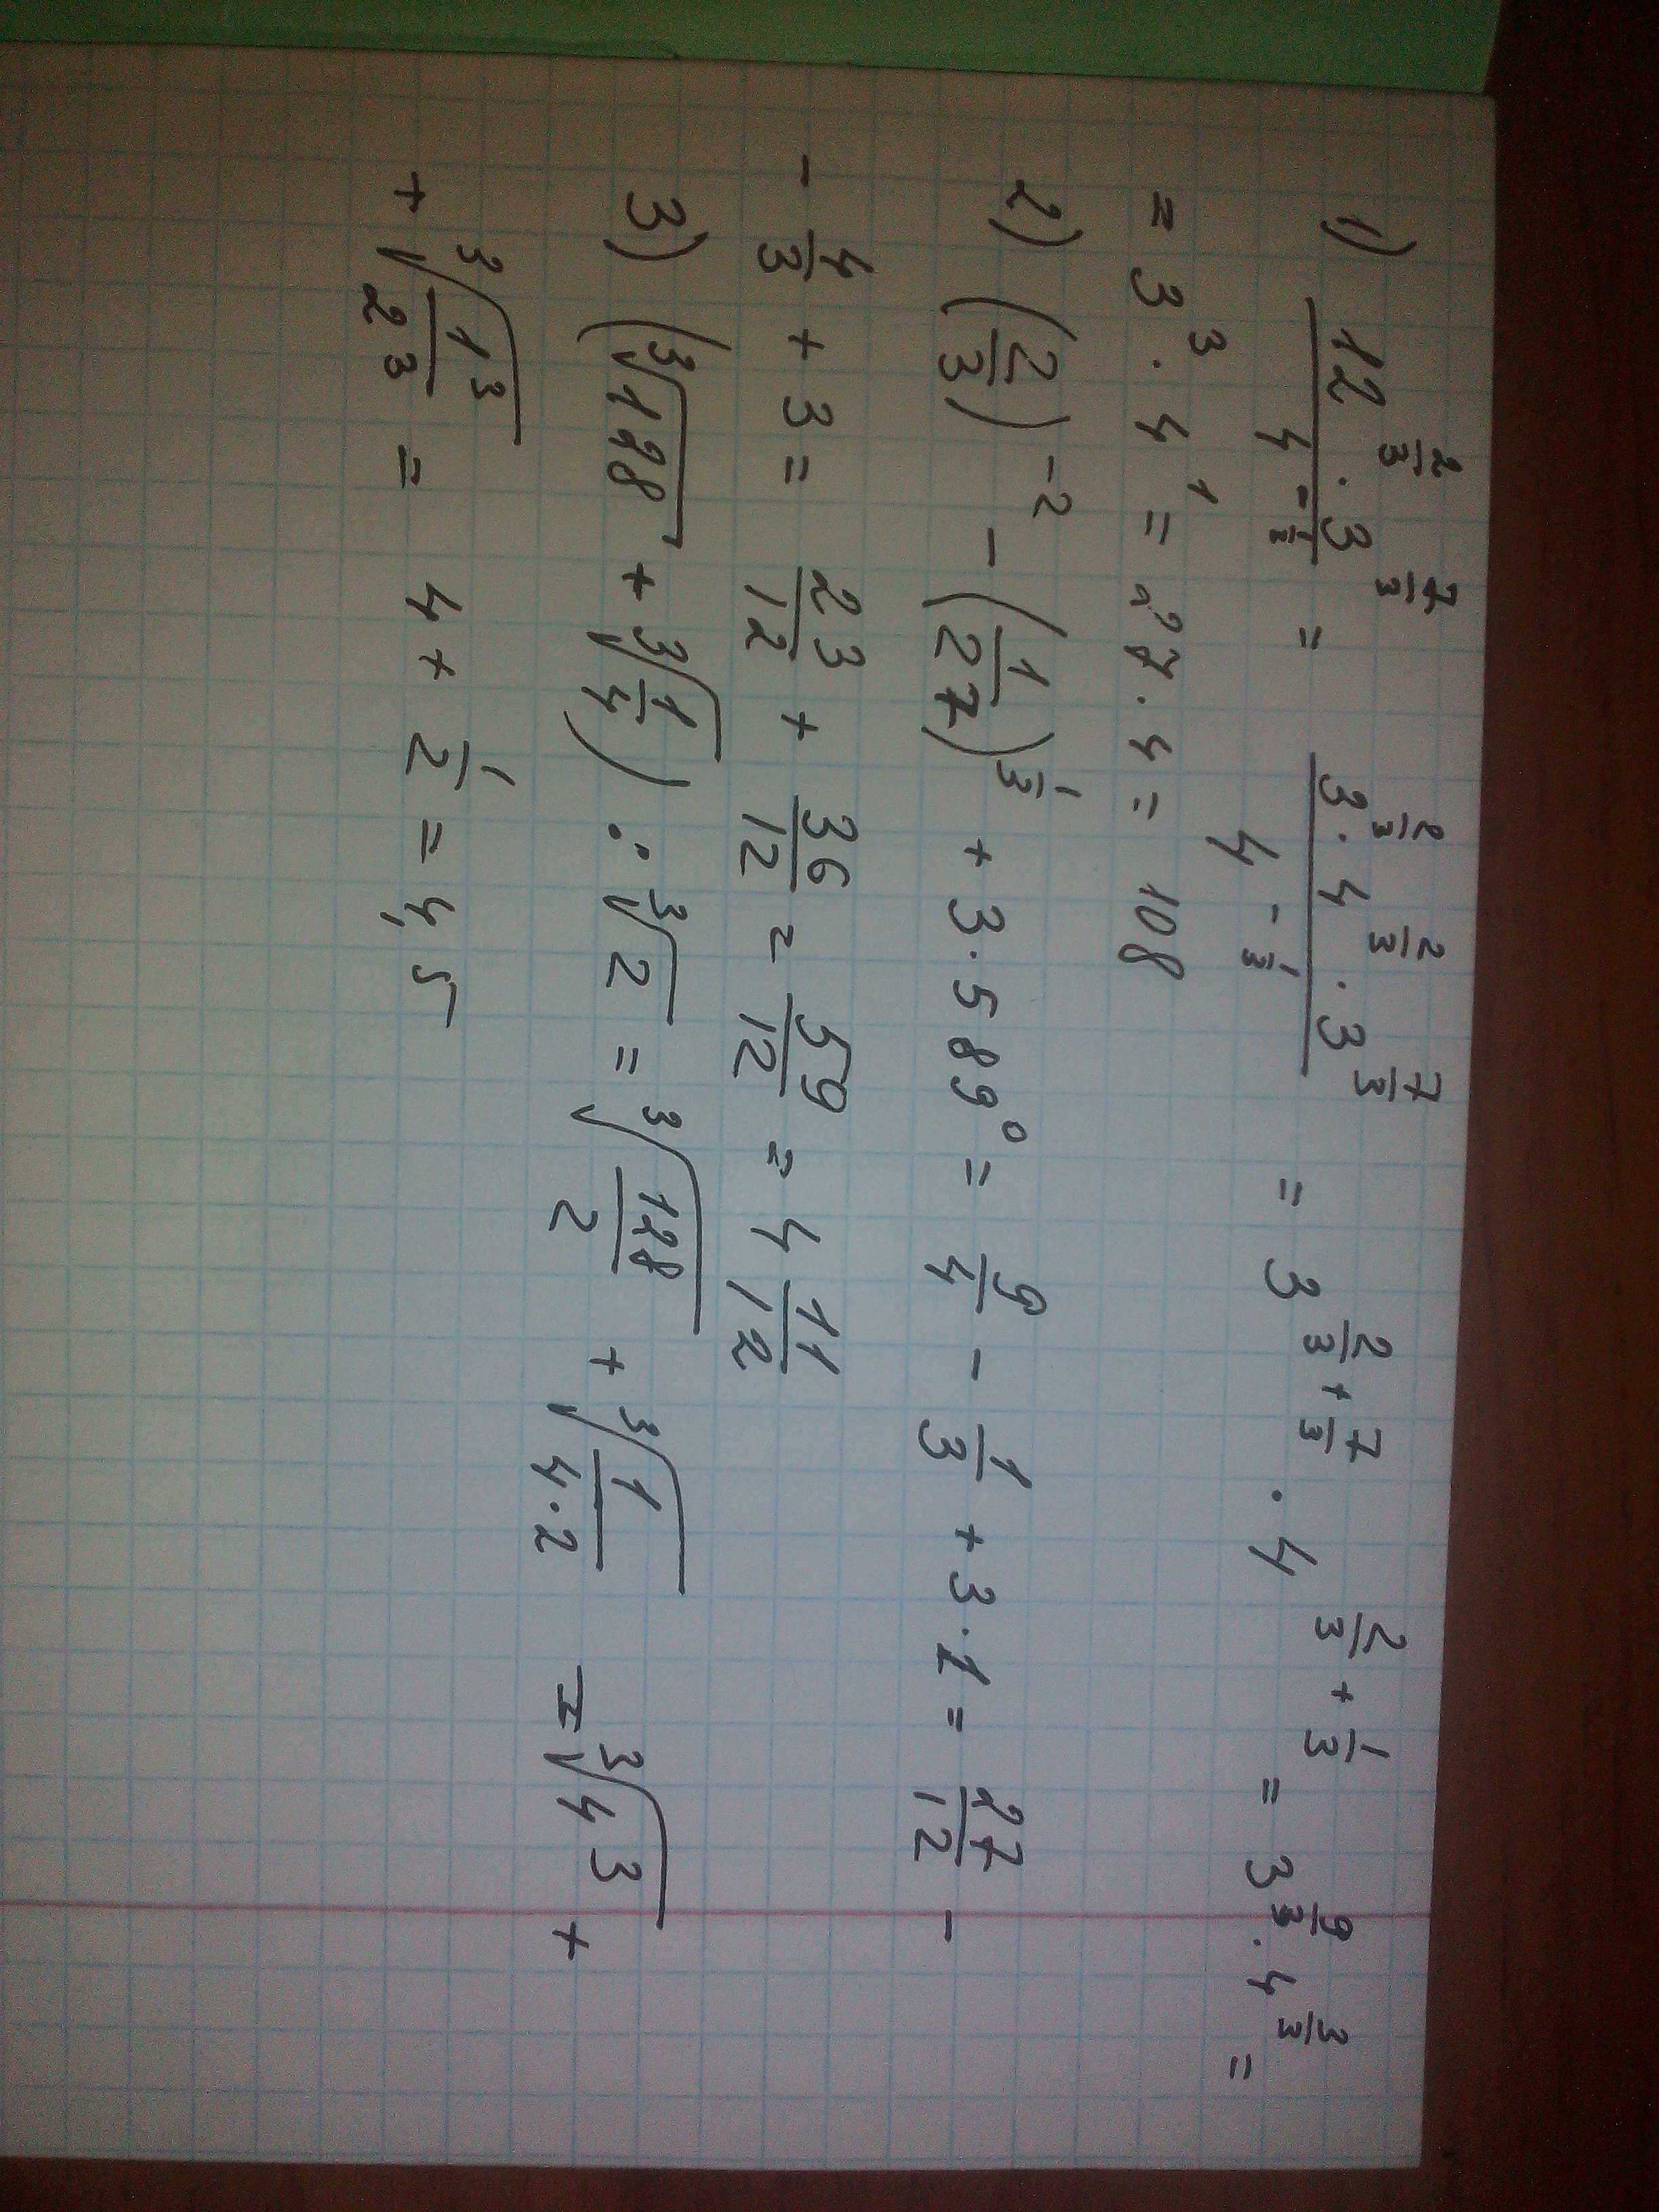 1) \frac{12^{\frac{2}{3}} \cdot 3^{\frac{7}{3}}}{4^{-\frac{1}{2}}} = \frac{3^{\frac{2}{3}} \cdot 4^{\frac{2}{3}} \cdot 3^{\frac{7}{3}}}{4^{-\frac{1}{3}}} = 3^{\frac{2}{3}+\frac{7}{3}} \cdot 4^{\frac{2}{3}+\frac{1}{3}} = 3^{\frac{9}{3}} \cdot 4^{\frac{3}{3}} =
= 3^3 \cdot 4^1 = 27 \cdot 4 = 108
2) (\frac{2}{3})^{-2} - (\frac{1}{27})^{\frac{1}{3}} + 3 \cdot 589^0 = \frac{9}{4} - \frac{1}{3} + 3 \cdot 1 = \frac{27}{12} -
- \frac{4}{3} + 3 = \frac{23}{12} + \frac{36}{12} = \frac{59}{12} = 4\frac{11}{12}
3) (\sqrt[3]{128} + \sqrt[3]{\frac{1}{4}}) : \sqrt[3]{2} = \sqrt[3]{\frac{128}{2}} + \sqrt[3]{\frac{1}{4 \cdot 2}} = \sqrt[3]{4^3} +
+ \sqrt[3]{\frac{1^3}{2^3}} = 4 + \frac{1}{2} = 4,5